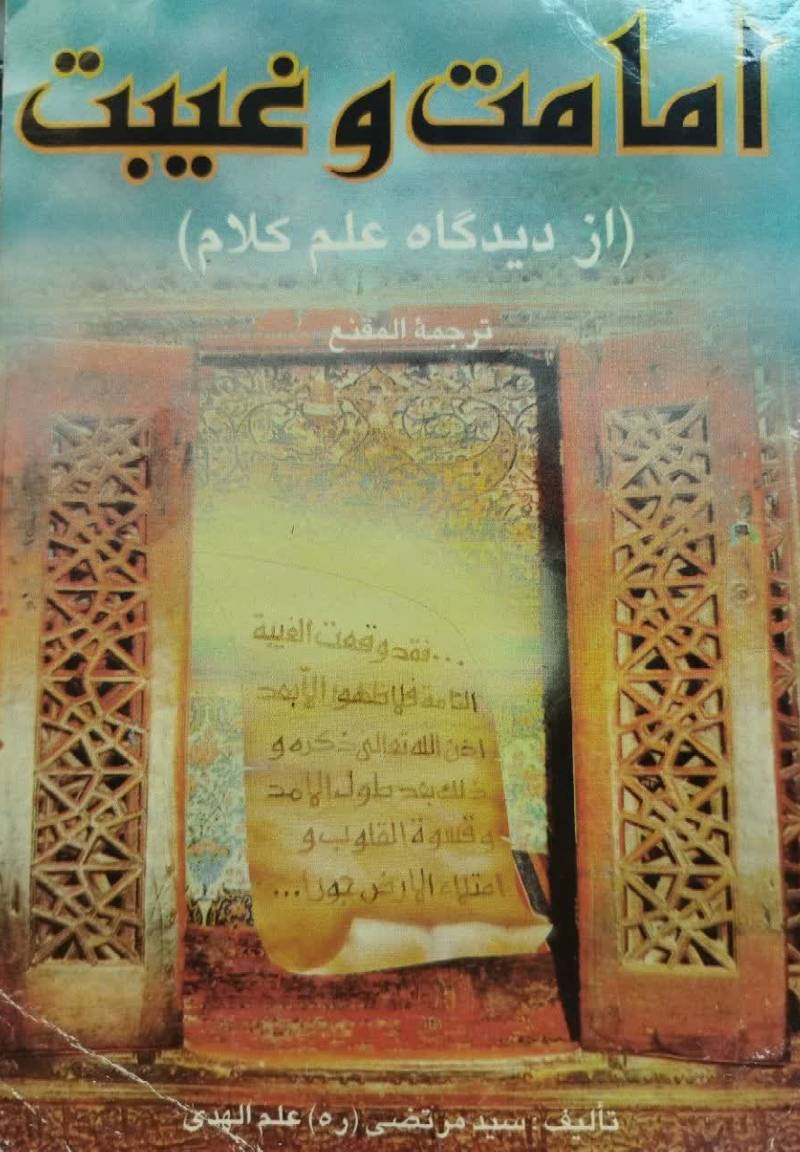 امامت و غیبت
(از دیدگاه علم کلام)
ترجمهٔ المقنع
...فقد وقعت الغیبة
التامة فلا ظهور الّا بعد
اذن الله تعالی ذکره و
ذلك بعد طول الامد
و قسوة القلوب و
امتلاء الارض جورا...
تألیف: سید مرتضی (ره) علم الهدی